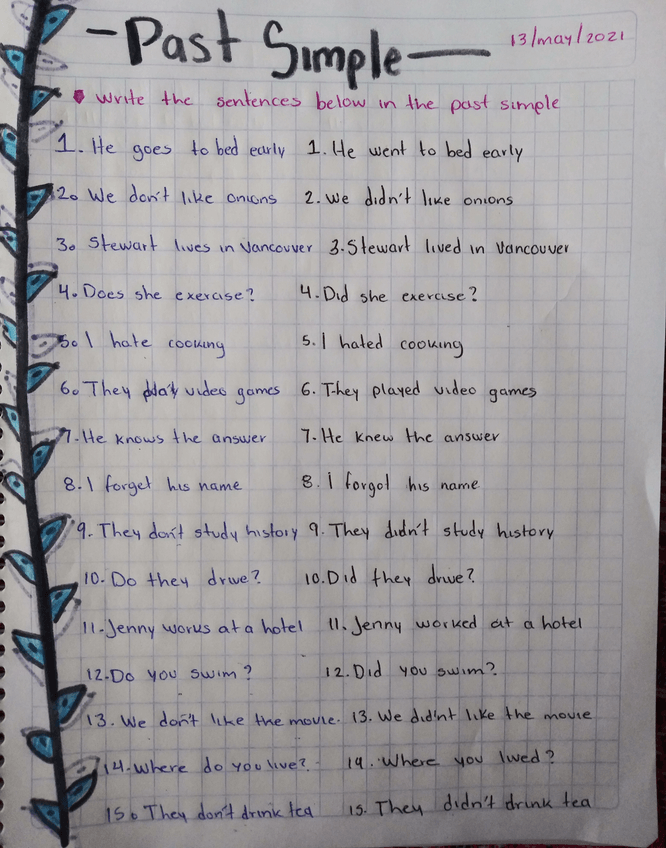 -Past Simple-
13/may/2021
write the sentences below in the past simple
1. He goes to bed early 1. He went to bed early
2. We don't like onions 2. we didn't like onions
3. Stewart lives in Vancouver 3. Stewart lived in Vancouver
4. Does she exercise? 4. Did she exercise?
5. I hate cooking 5. I hated cooking
6. They video games 6. They played video games
7. He knows the answer 7. He knew the answer
8. I forget his name 8. I forgot his name
9. They don't study history 9. They didn't study history
10. Do they drive? 10. Did they drive?
11. Jenny works at a hotel 11. Jenny worked at a hotel
12. Do you swim? 12. Did you swim?
13. We don't like the movie. 13. We did'nt like the movie
14. Where do you live? 14. Where you lived?
15. They don't drink tea 15. They didn't drink tea